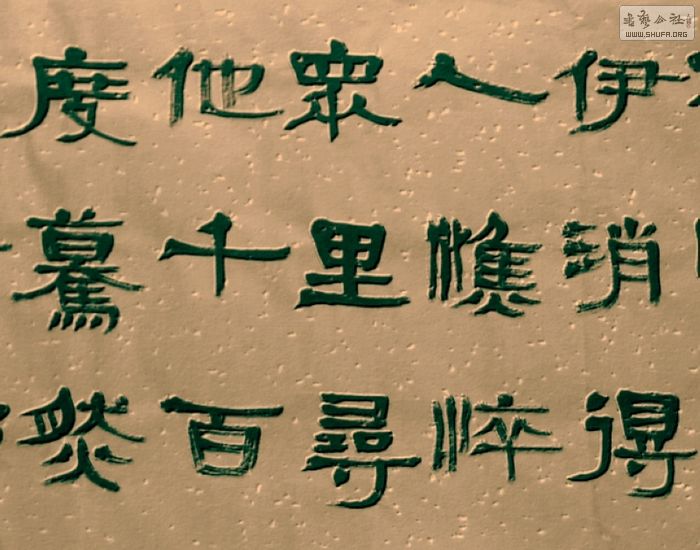 伊消得
人憔悴
眾里尋
他千百
度驀然
書藝公社
WWW.SHUFA.ORG